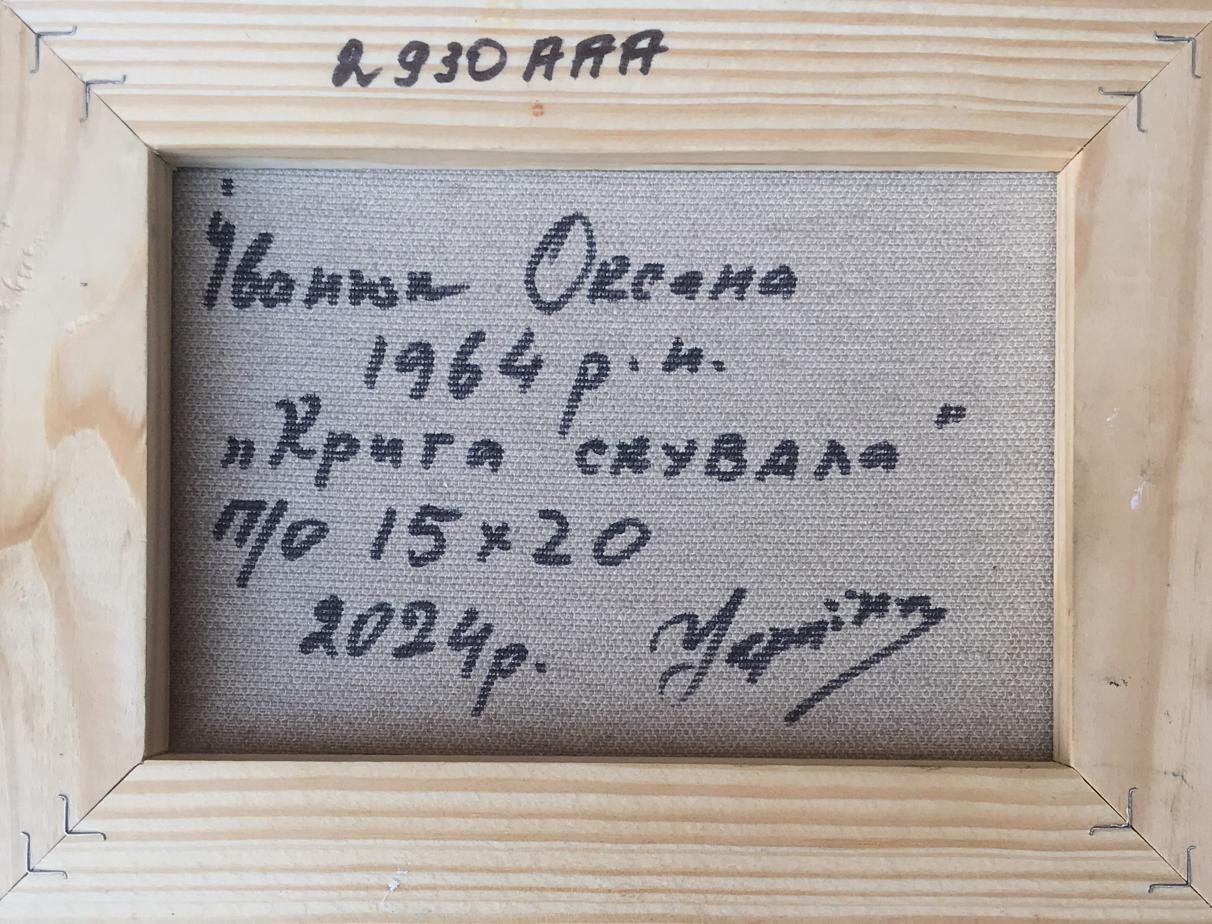 2930 AAA
Іванюк Оксана
1964 р.н.
„Крига скувала"
п/о 15x20
2024р.